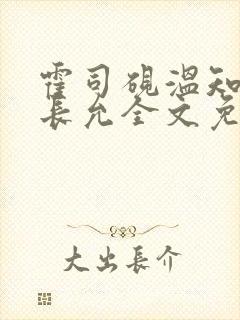 霍司砚温知
長允全文免
大出長介